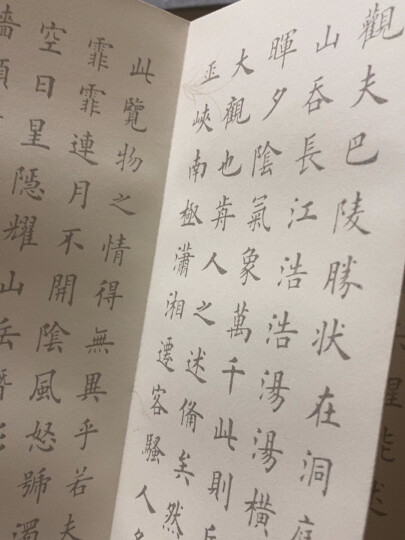 觀夫巴陵勝状在洞庭
山吞長江浩浩湯湯橫
暉夕陰氣象萬千此則
大觀也歬人之述俻矣然
巫峽南極瀟湘遷客騷人
此覽物之情得無異乎若夫
霏霏連月不開陰風怒號濁
空日星隱耀山岳